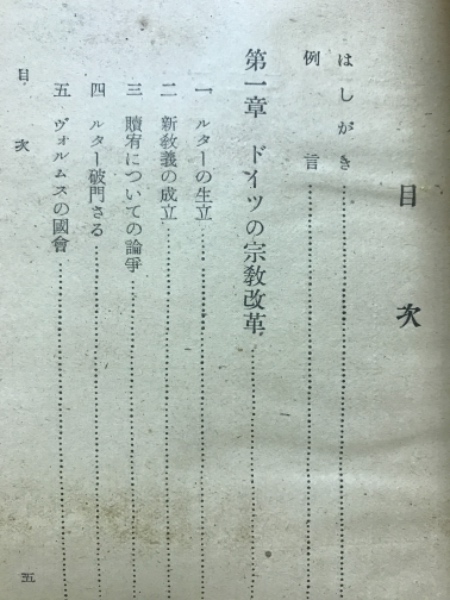 目次
はしがき
例言
第一章 ドイツの宗教改革
一 ルターの生立
二 新教義の成立
三 贖宥についての論爭
四 ルター破門さる
五 ヴォルムスの國會
目次
五